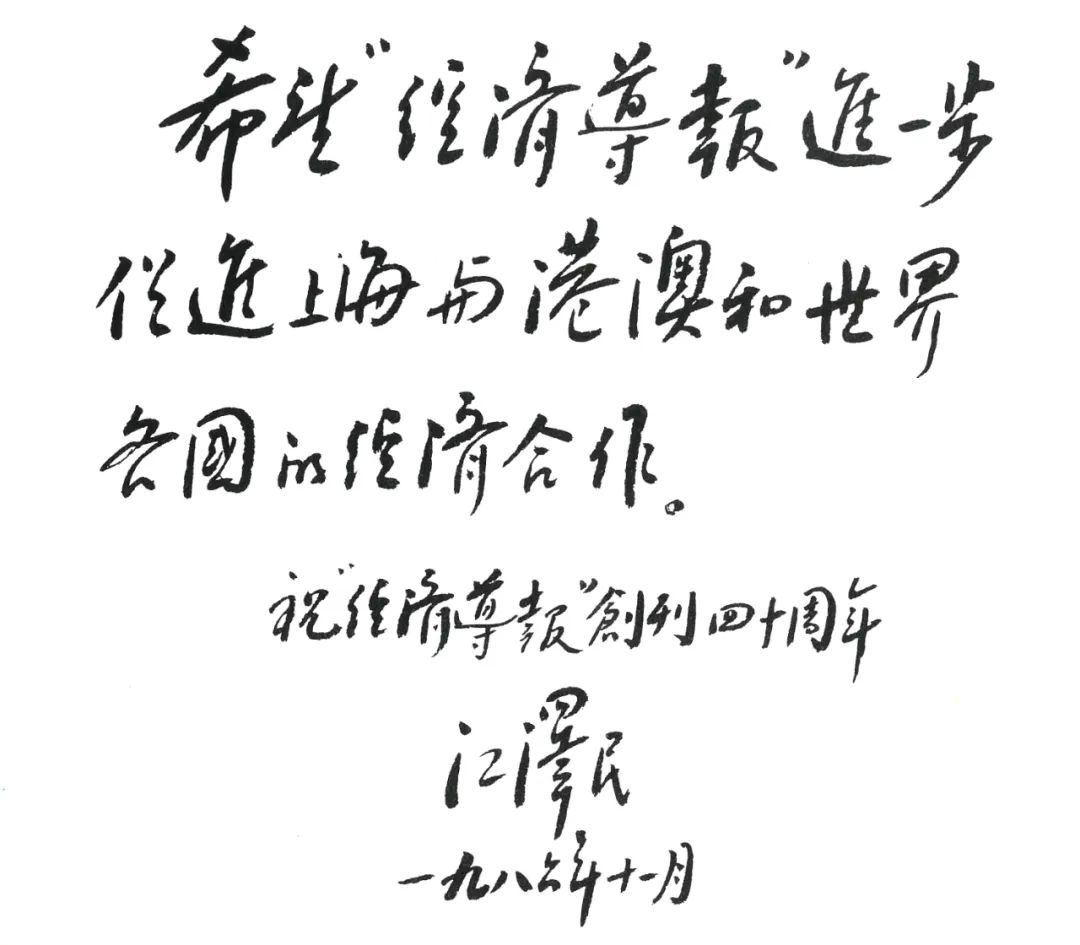 希望“經濟導報”進一步
促進上海與港澳和世界
各國的經濟合作。
祝“經濟導報”創刊四十周年
江澤民
一九八六年十一月